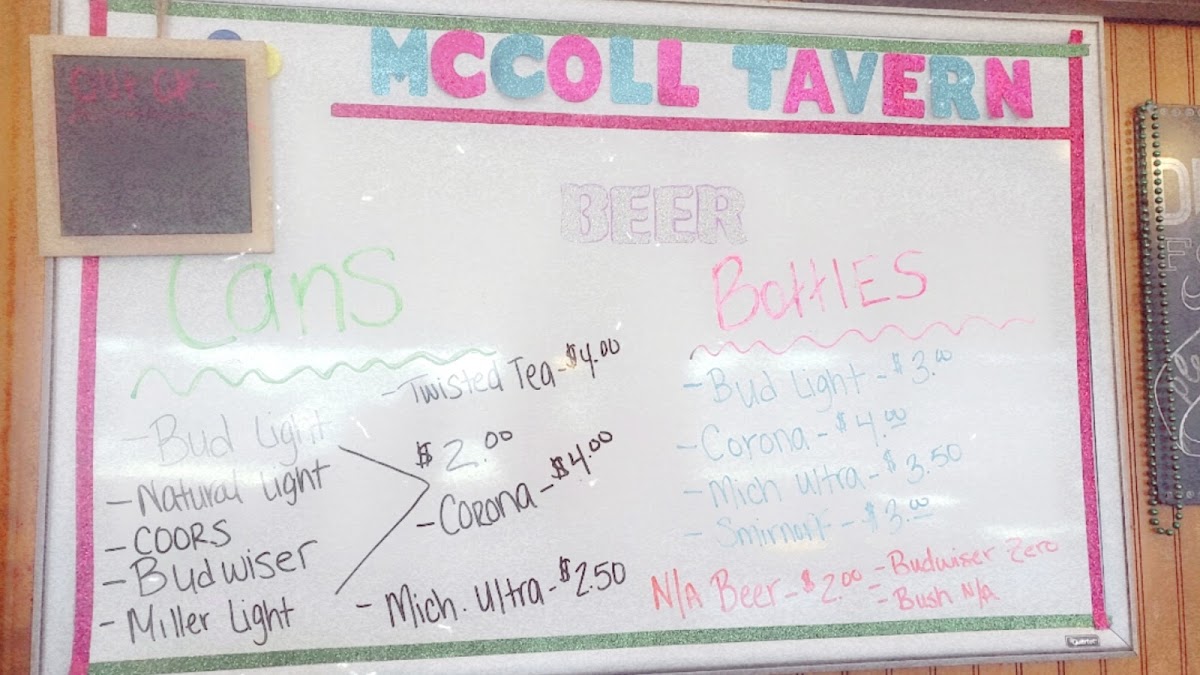 OUT OF-
MCCOLL TAVERN
BEER
Cans
- Twisted Tea - $4.00
- Bud Light
- Natural Light
- COORS
- Budwiser
- Miller Light
$2.00
- Corona - $4.00
- Mich. Ultra - $2.50
BottlES
- Bud Light - $3.00
- Corona - $4.00
- Mich Ultra - $3.50
- Smirnoff - $3.00
N/A Beer - $2.00 - Budwiser Zero
- Bush N/A